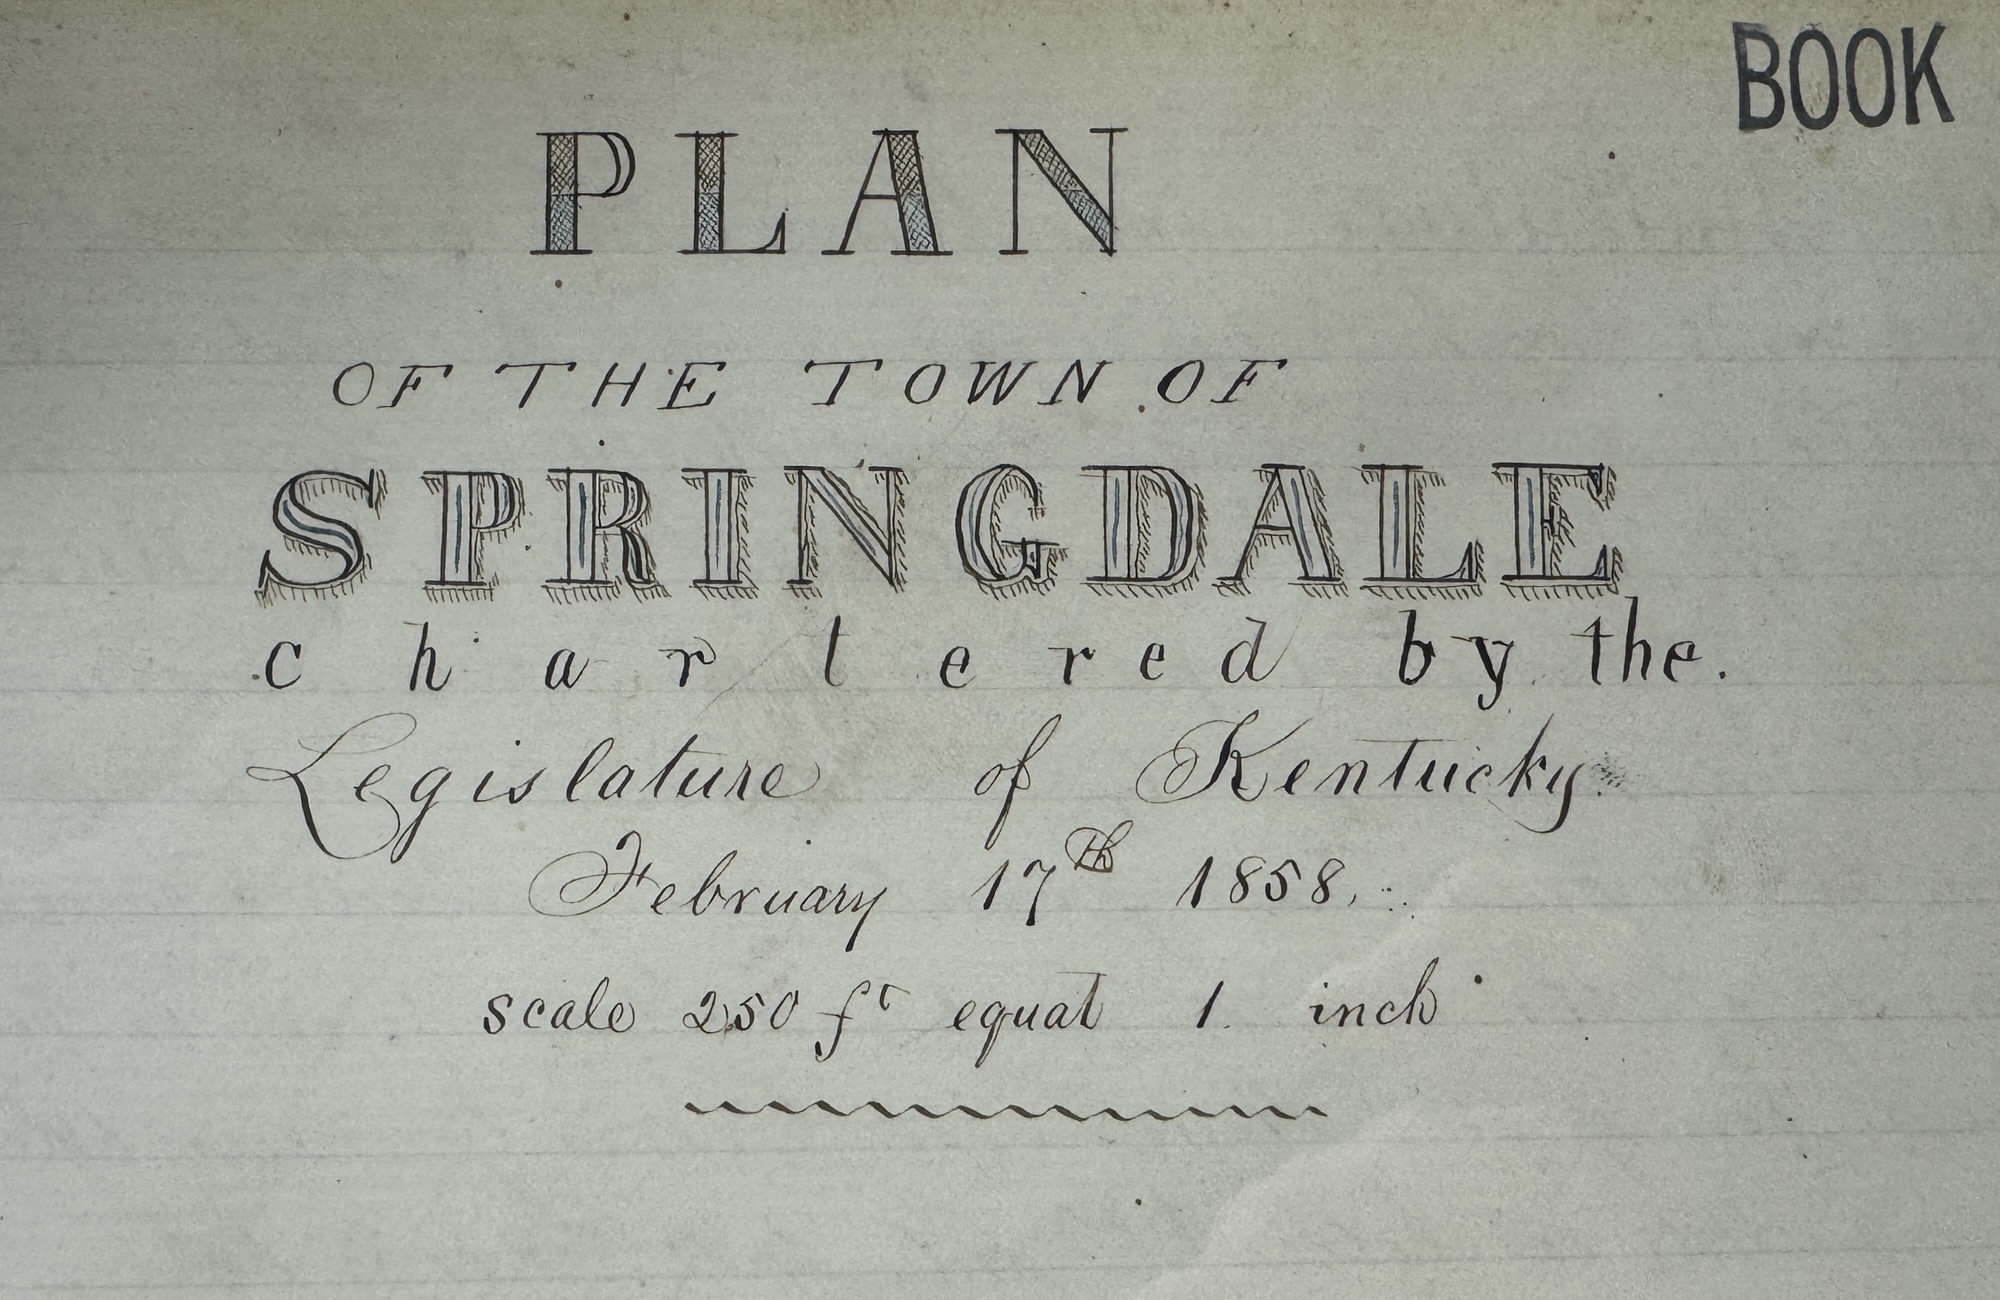 BOOK
PLAN
OF THE TOWN OF
SPRINGDALE
chartered by the.
Legislature of Kentucky
February 17th 1858.
scale 250 ft equal 1. inch